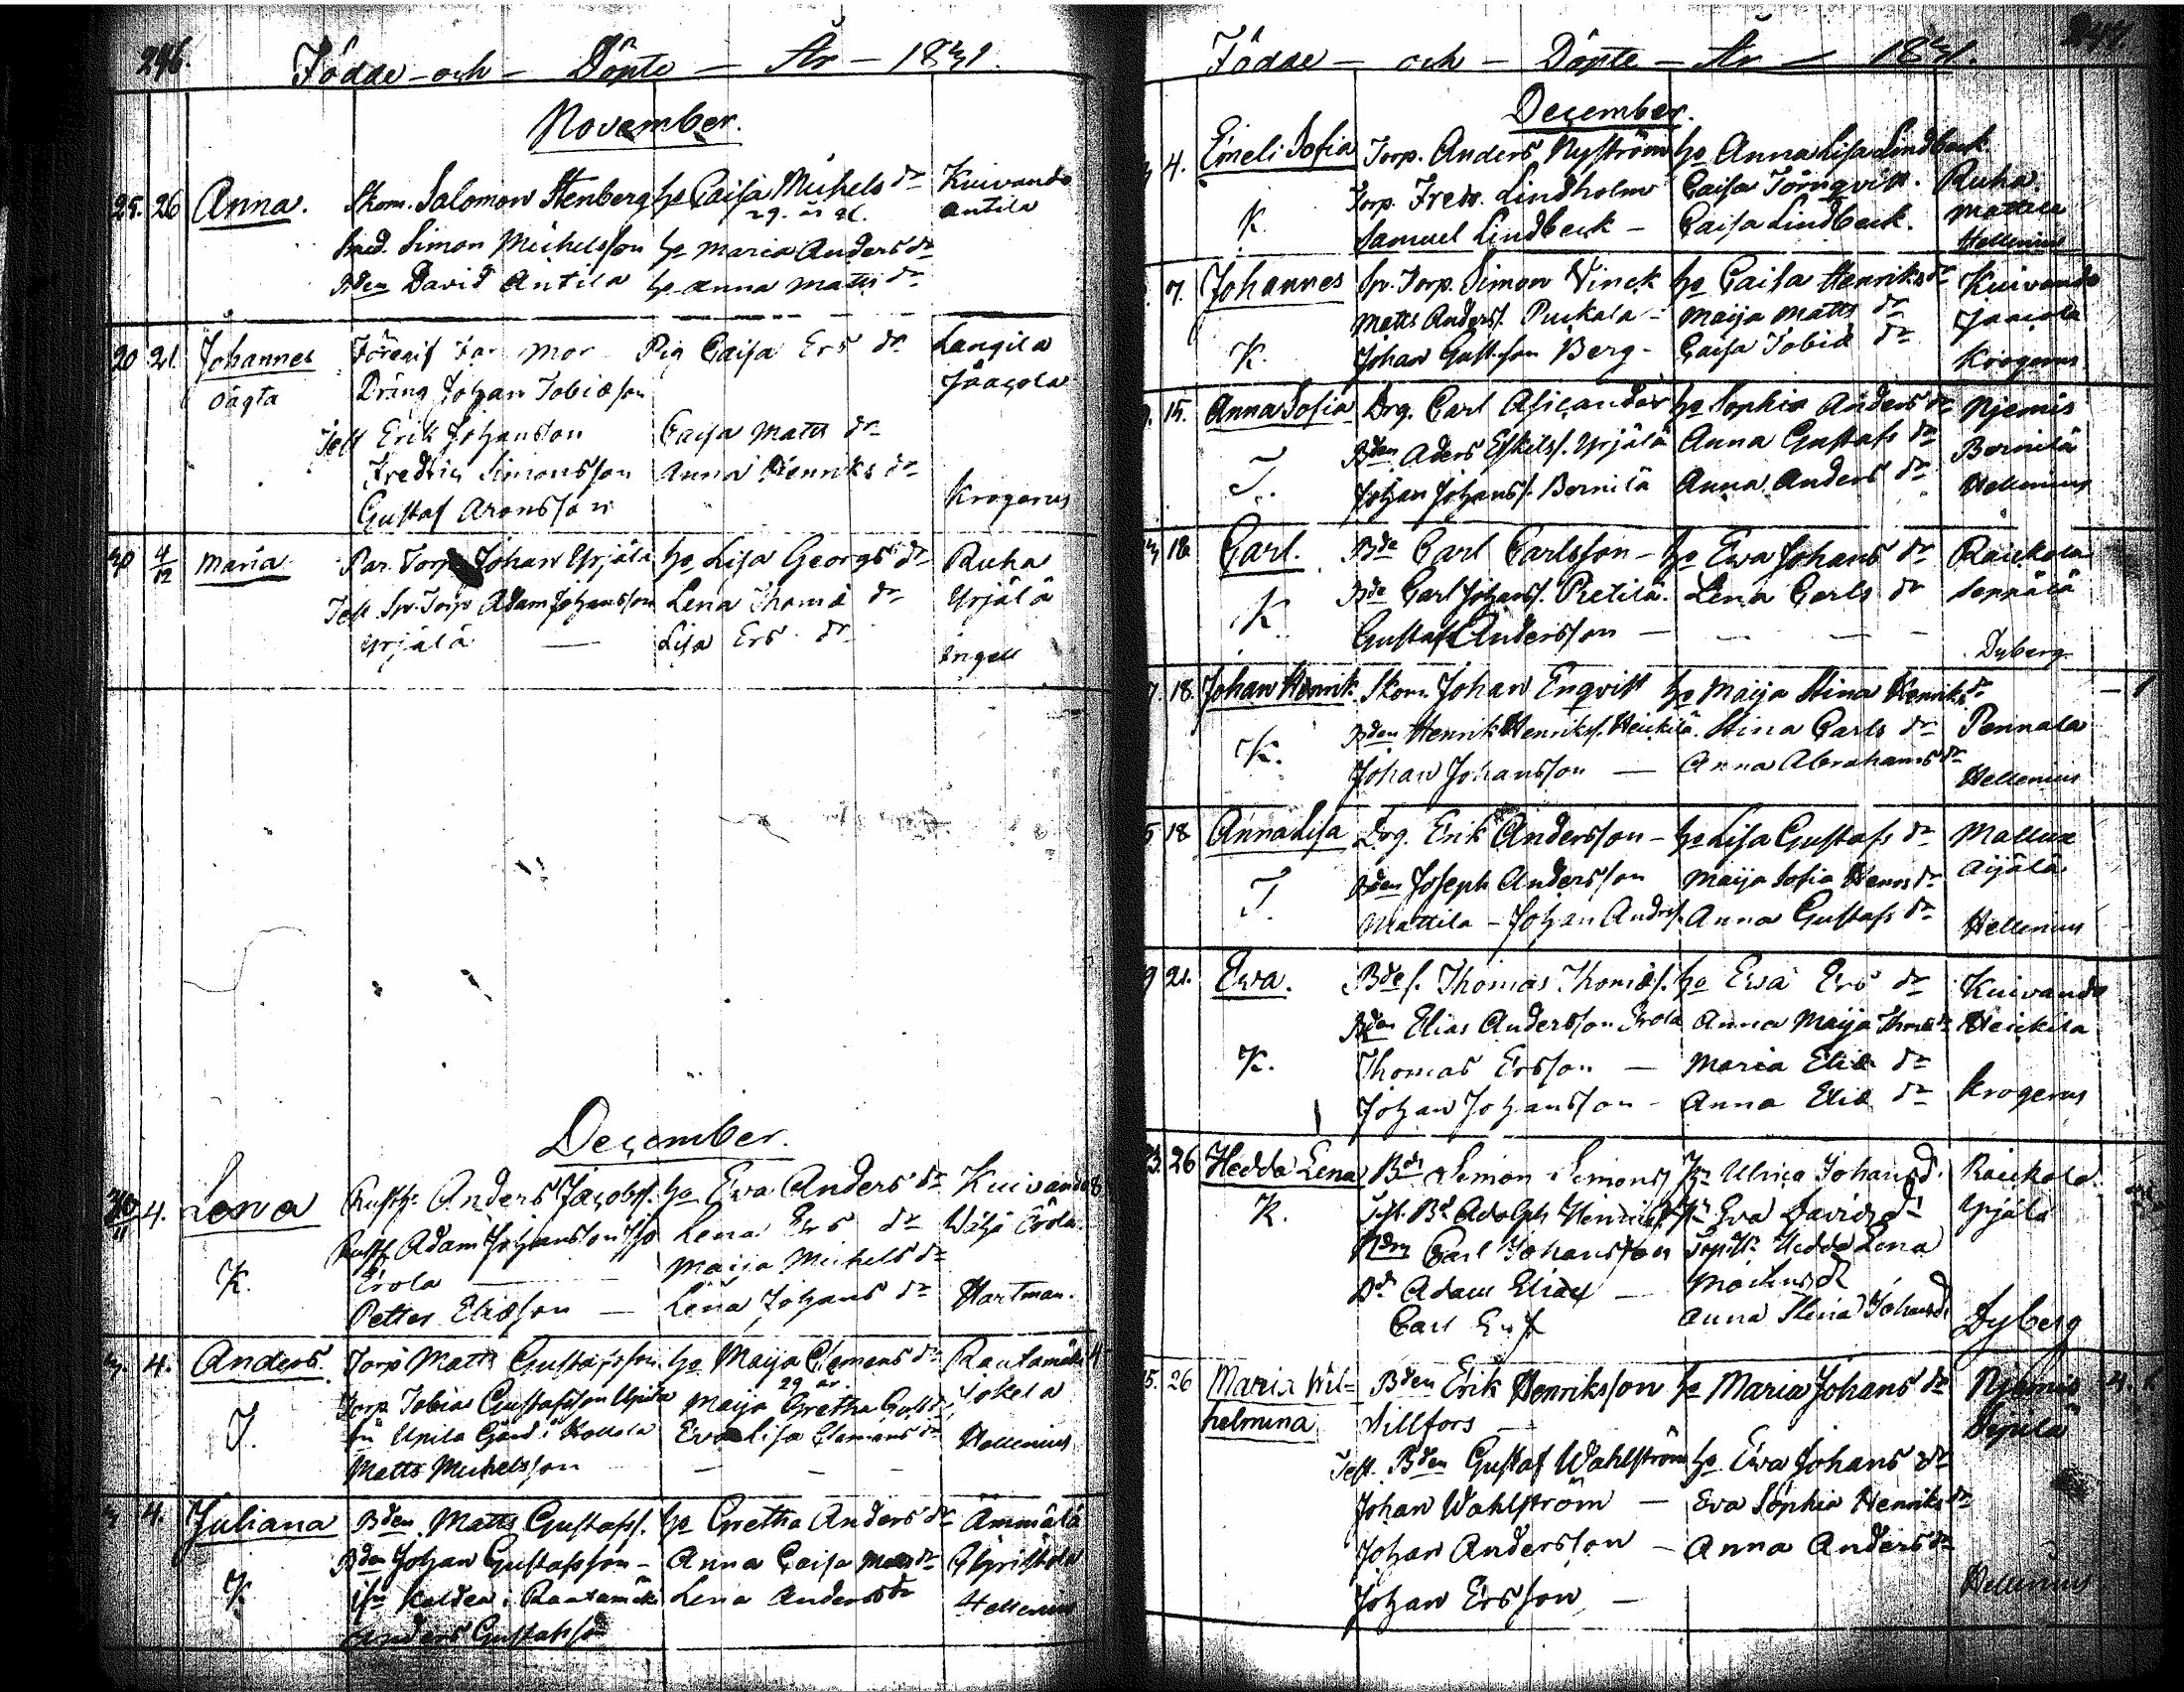 246.
Födde - och - Döpte - År - 1841.
November.
25. 26 Anna. Skom. Salomon Stenberg ho Caisa Michels dr Kuivando
29. år gl. Antila
Simon Michelsson ho Maria Anders dr
Bden David Antila ho Anna Matts dr
20 21. Johannes Pig Caisa Ers dr Langila
oägta Dräng Johan Tobiæson Jaacola
Test Erik Johansson Caisa Matts dr
Fredric Simonsson Anna Henriks dr
Gustaf Aronsson Krogerus
30 4/12 Maria Par. Torp Johan Yrjälä ho Lisa Georgs dr Ruha
Test. Sp. Torp Adam Johansson Lena Thomæ dr Yrjälä
Yrjälä — Lisa Ers dr Ingell
December.
30/11 4. Lena Rusth. Anders Jacobss. ho Eva Anders dr Kuivando
Rusth Adam Johansson Lena Ers dr Wähä Erola
K. Erola — Maija Michels dr
Petter Eliæson — Lena Johans dr Hartman.
4. Anders. Torp Matts Gustafsson ho Maija Clemens dr Rautamäki
29 år
Torp Tobias Gustafsson Upila Maija Gretha Gust dr Jokela
T. Upila Gård i Kollola Eva Lisa Clemens dr Hellenius
Matts Michelsson — — —
4. Juliana Bden Matts Gustafss. ho Gretha Anders dr Ammälä
Bden Johan Gustafsson - Anna Caisa Matts dr
K Rautamäki Lena Anders dr Hellenius
Anders Gustafsson
247.
Födde - och - Döpte - År - 1841.
December.
4. Emeli Sofia Torp. Anders Nyström ho Anna Lisa Lindbeck
Torp. Fredr. Lindholm Caisa Törnqvist. Ruha
K. Samuel Lindbeck — Caisa Lindbeck. Mattila
Hellenius
7. Johannes Sp. Torp. Simon Vinck ho Caisa Henriks dr Kuivando
Matts Anderss. Puckala - Maija Matts dr Jaacola
K. Johan Gustafson Berg - Caisa Tobiæ dr Krogerus
15. Anna Sofia Drg. Carl Asicander ho Sophia Anders dr Njemis
Bden Aders Eskilss. Yrjälä Anna Gustafs dr Bernilä
T. Johan Johanss. Bernilä Anna Anders dr Hellenius
18 Carl. Bde Carl Carlsson - ho Ewa Johans dr Raukola
Bde Carl Johanss. Pietilä. Lena Carls dr Seppälä
K Gustaf Andersson — — — —
Dyberg
18. Johan Henrik. Skom Johan Enqvist ho Maija Stina Henriks dr — 1
Bden Henrik Henrikss. Heickilä. Stina Carls dr Pennala
K. Johan Johansson — Anna Abrahams dr
Hellenius
18 Anna Lisa Drg. Erik Andersson - ho Lisa Gustafs dr Mallux
Bden Joseph Andersson Maija Sofia Henrs dr Aijälä
T. Mattila - Johan Anderss. Anna Gustafs dr Hellenius
21. Ewa. Bdes. Thomas Thomæs. ho Ewa Ers dr Kuivando
Bden Elias Andersson Erola Anna Maija Thomæ dr Heickilä
K. Thomas Ersson — Maria Eliæ dr
Johan Johansson - Anna Eliæ dr Krogerus
26 Hedda Lena Bdn Simon Simons. Ulrica Johansd. Raickola
K. Test. Bd Adolph Henrikss. Hn Eva Davidsdr Yrjälä
Bdn Carl Johansson Hedda Lena
Bdn Adam Eliæs —
Carl Ersf Anna Stina Johansd. Dyberg
26 Maria Wil= Bden Erik Henriksson ho Maria Johans dr Njemis 4.
helmina Sillfors
Test. Bden Gustaf Wahlström ho Ewa Johans dr
Johan Wahlström — Eva Sophia Henriks dr
Johan Andersson — Anna Anders dr
Johan Ersson — Hellenius